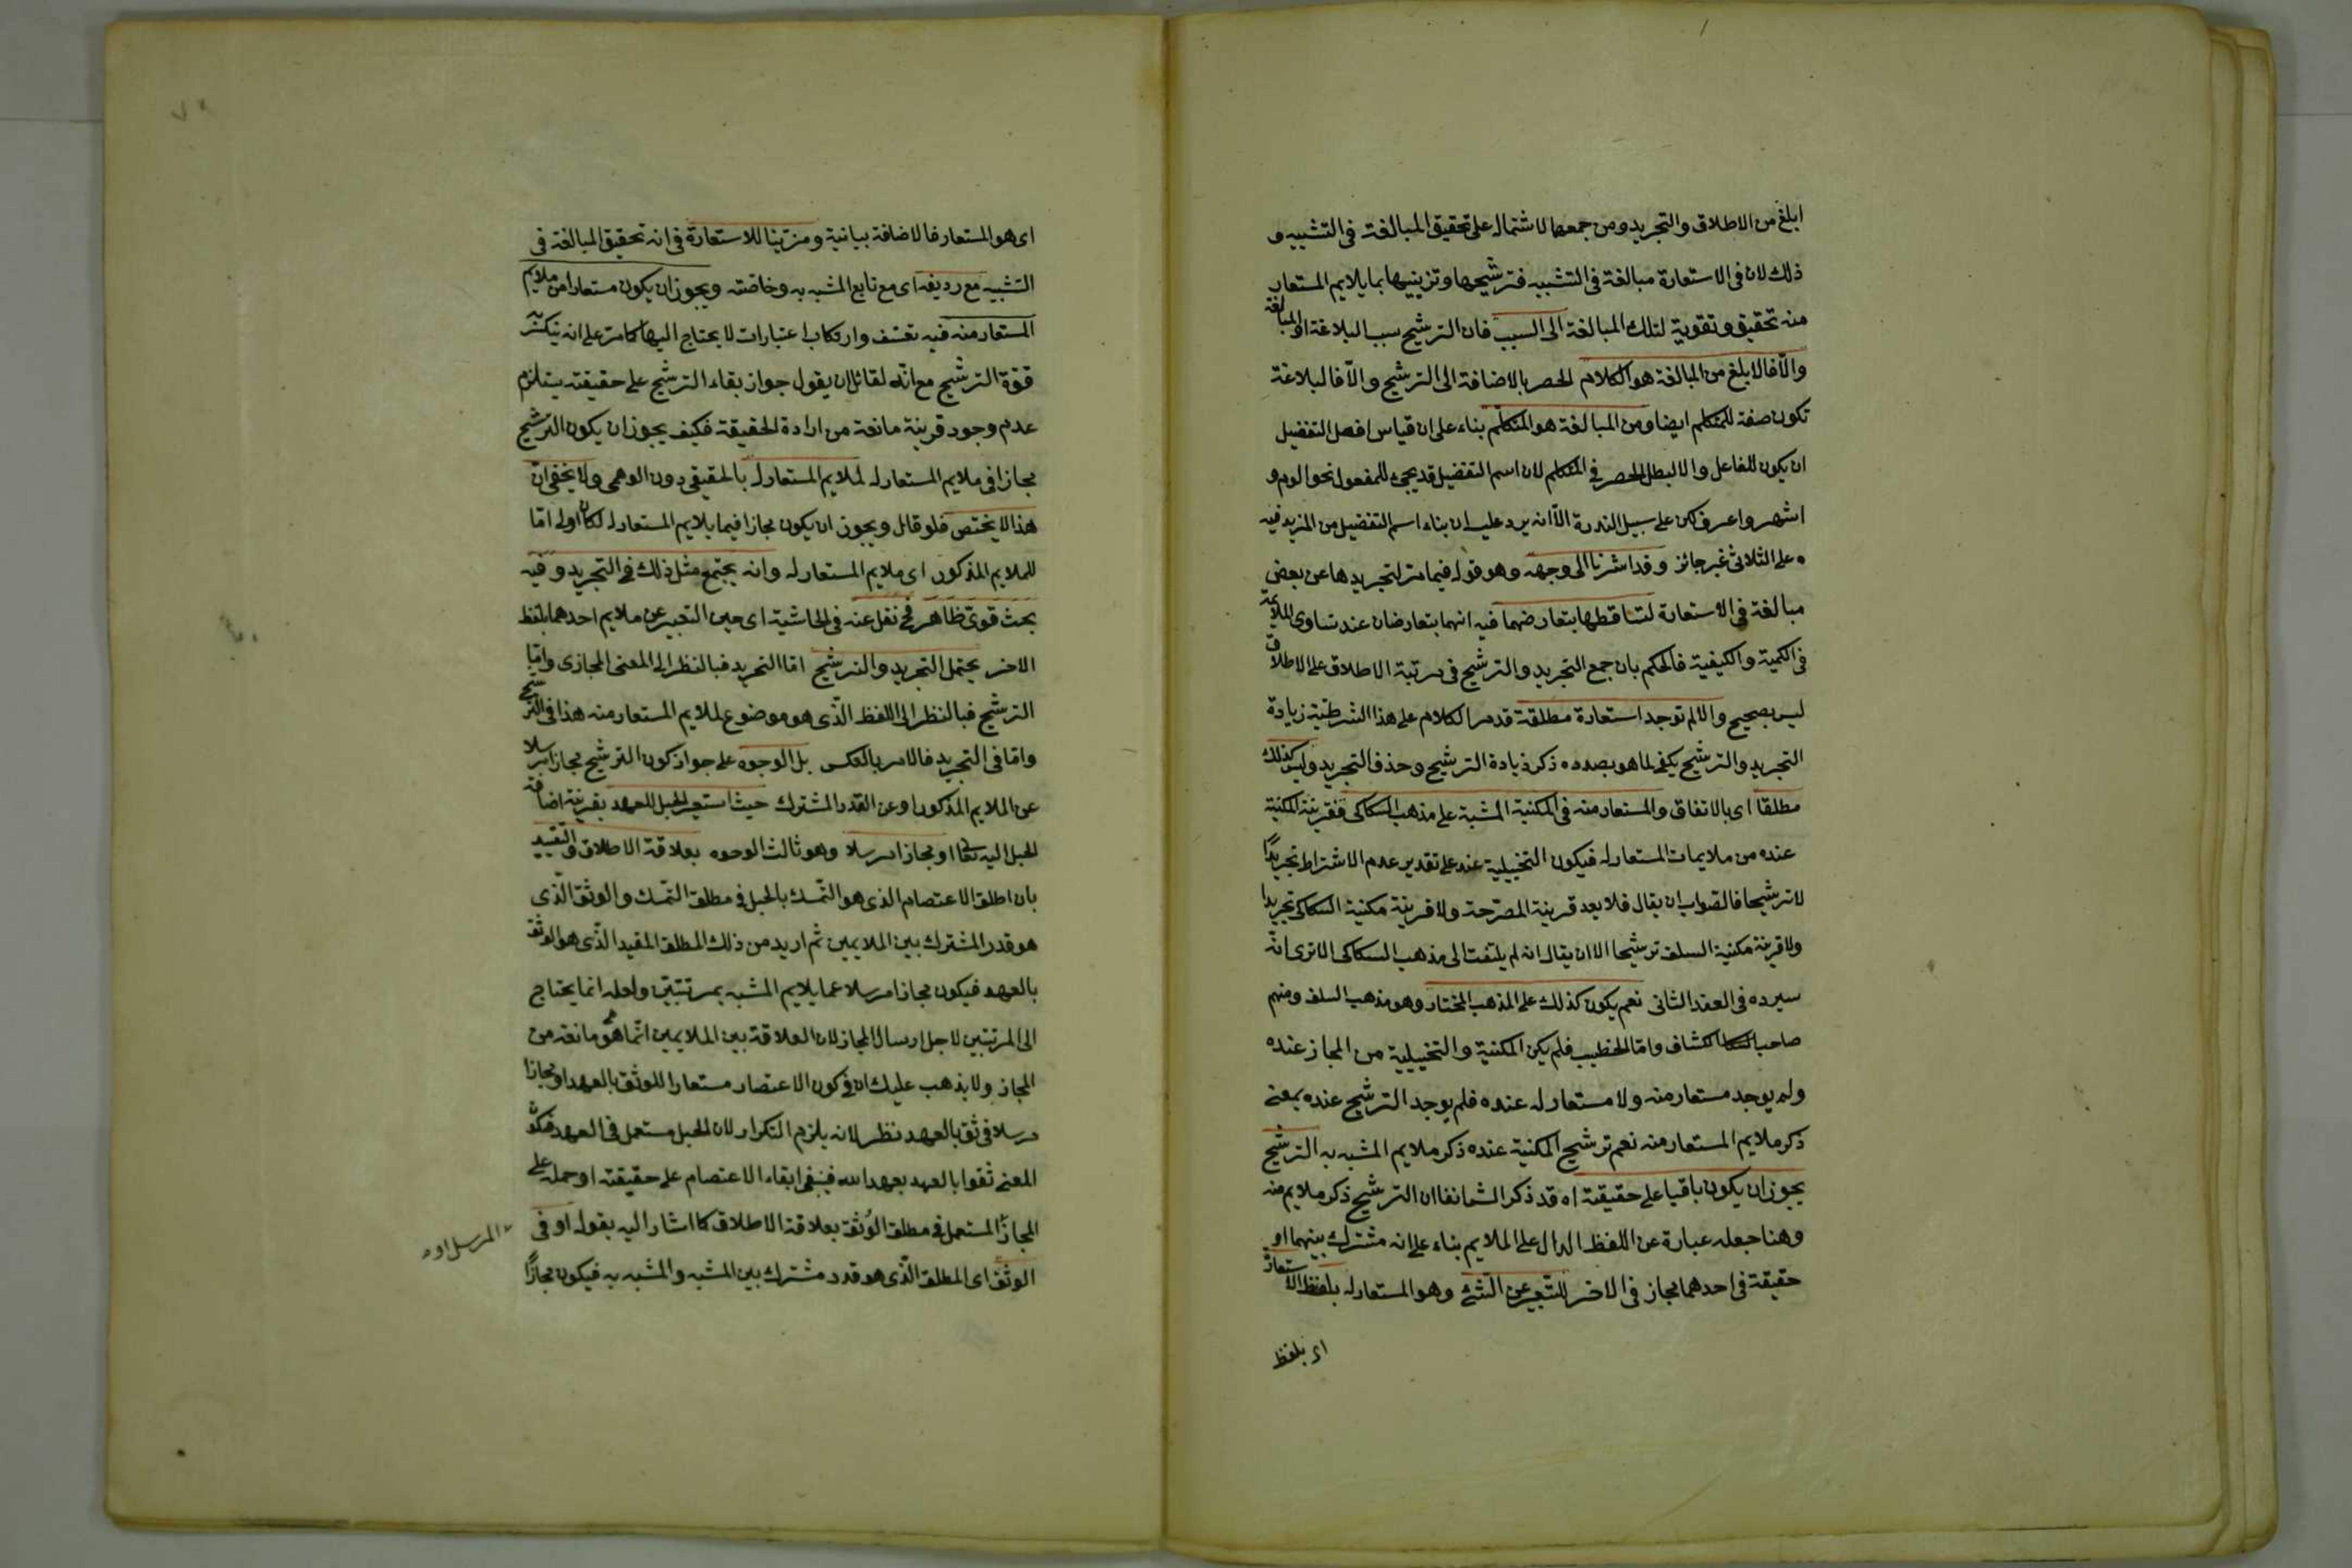 ابلغ من الاطلاق والتجريد ومن جمعهما لاشتماله على تحقيق المبالغة فى التشبيه و
ذلك لان فى الاستعارة مبالغة فى التشبيه فترشيحها وتزيينها بما يلايم المستعار
منه تحقيق وتقوية لتلك المبالغة الى السبب فان الترشيح سبب البلاغة او المبالغة
والّا فالابلغ من المبالغة هو الكلام الحصر بالاضافة الى الترشيح والّا فالبلاغة
تكون صفة للمتكلم ايضا ومن المبالغة هو المتكلم بناء على ان قياس افعل التفضيل
ان يكون للفاعل والا لبطل الحصر فى المتكلم لان اسم التفضيل قد يجئ للمفعول نحو الوم و
اشهر واعرف لكن على سبيل الندرة الّا انه يرد عليه ان بناء اسم التفضيل من المزيد فيه
على الثلاثى غير جائز وقد اشرنا الى وجهه وهو قوله فيما مر لتجريدها عن بعض
مبالغة فى الاستعارة لتساقطها بتعارضهما فيه انهما يتعارضان عند تساوى الملايمة
فى الكمية والكيفية فالحكم بان جمع التجريد والترشيح فى مرتبة الاطلاق على الاطلاق
ليس بصحيح والا لم توجد استعارة مطلقة قدمر الكلام على هذا الشرطية زيادة
التجريد والترشيح يكفى لما هو بصدده ذكر زيادة الترشيح وحذف التجريد وليس كذلك
مطلقا اى بالاتفاق والمستعار منه فى المكنية المشبة على مذهب السكاكى فقرينة المكنية
عنده من ملايمات المستعار له فيكون التخييلية عنده على تقدير عدم الاشتراط تجريدًا
لا ترشيحا فالصواب ان يقال فلا يعد قرينة المصرّحة ولا قرينة مكنية السكاكى تجريدا
ولا قرينة مكنية السلف ترشيحا الا ان يقال انه لم يلتفت الى مذهب السكاكى الا ترى انه
سيرده فى العقد الثانى نعم يكون كذلك على المذهب المختار وهو مذهب السلف ومنهم
صاحب الكشاف وامّا الخطيب فلم يكن المكنية والتخييلية من المجاز عنده
ولم يوجد مستعار منه ولا مستعار له عنده فلم يوجد الترشيح عنده بمعنى
ذكر ملايم المستعار منه نعم ترشيح المكنية عنده ذكر ملايم المشبه به الترشيح
يجوز ان يكون باقيا على حقيقته اه قد ذكر انفا ان الترشيح ذكر ملايم منه
وهنا جعله عبارة عن اللفظ الدال على الملايم بناء على انه مشترك بينهما او
حقيقة فى احدهما مجاز فى الاخر للتعبير عن الشئ وهو المستعار له بلفظ الاستعارة
اى بلفظ
اى هو المستعار فالاضافة بيانية ومزيّنا للاستعارة فى انه تحقيق المبالغة فى
التشبيه مع رديفه اى مع تابع المشبه به وخاصّته ويجوز ان يكون مستعارا من ملايم
المستعار منه فيه تعسّف وارتكاب اعتبارات لا يحتاج اليها كما مر على انه
قوّة الترشيح مع انّه لقائل ان يقول جواز بقاء الترشيح على حقيقته يستلزم
عدم وجود قرينة مانعة من ارادة الحقيقة فكيف يجوز ان يكون الترشيح
مجازا فى ملايم المستعار له لملايم المستعار له بالحقيقى دون الوهمى ولا يخفى انّ
هذا لا يختص فلو قال ويجوز ان يكون مجازا فيما يلايم المستعار له لكان اولى امّا
للملايم المذكور اى ملايم المستعار له وانه يجتمع مثل ذلك فى التجريد وفيه
بحث قوىّ ظاهر نقل عنه فى الحاشية اى حين التعبير عن ملايم احدهما بلفظ
الاخر يحتمل التجريد والترشيح امّا التجريد فبالنظر الى المعنى المجازى وامّا
الترشيح فبالنظر الى اللفظ الّذى هو موضوع لملايم المستعار منه هذا فى الترشيح
وامّا فى التجريد فالامر بالعكس بل الوجوه على جواز كون الترشيح مجازا مرسلا
عن الملايم المذكور او عن القدر المشترك حيث استعير الحبل للعهد بقرينة اضافة
الحبل اليه تعالى او مجازا مرسلا وهو ثالث الوجوه بعلاقة الاطلاق والتقييد
بان اطلق الاعتصام الذى هو التّمسك بالحبل فى مطلق التمسك والوثق الّذى
هو قدر المشترك بين الملايمين ثم اريد من ذلك المطلق المقيد الّذى هو الوثق
بالعهد فيكون مجازا مرسلا عما يلايم المشبه بمرتبتين ولعله انما يحتاج
الى المرتبتين لاجل ارسال المجاز لان العلاقة بين الملايمين انّما هو مانعة من
المجاز ولا يذهب عليك ان فى كون الاعتصام مستعارا للوثق بالعهد او مجازا
مرسلا فى ثق بالعهد نظر لانه يلزم التكرار لان الحبل مستعمل فى العهد
المعنى ثقوا بالعهد بعهد الله فينبغى ابقاء الاعتصام على حقيقته او حمله على
المجاز المستعمل فى مطلق الوثق بعلاقة الاطلاق كما اشار اليه بقوله او فى
المرسل اه
الوثق اى المطلق الّذى هو قدر مشترك بين المشبه والمشبه به فيكون مجازًا